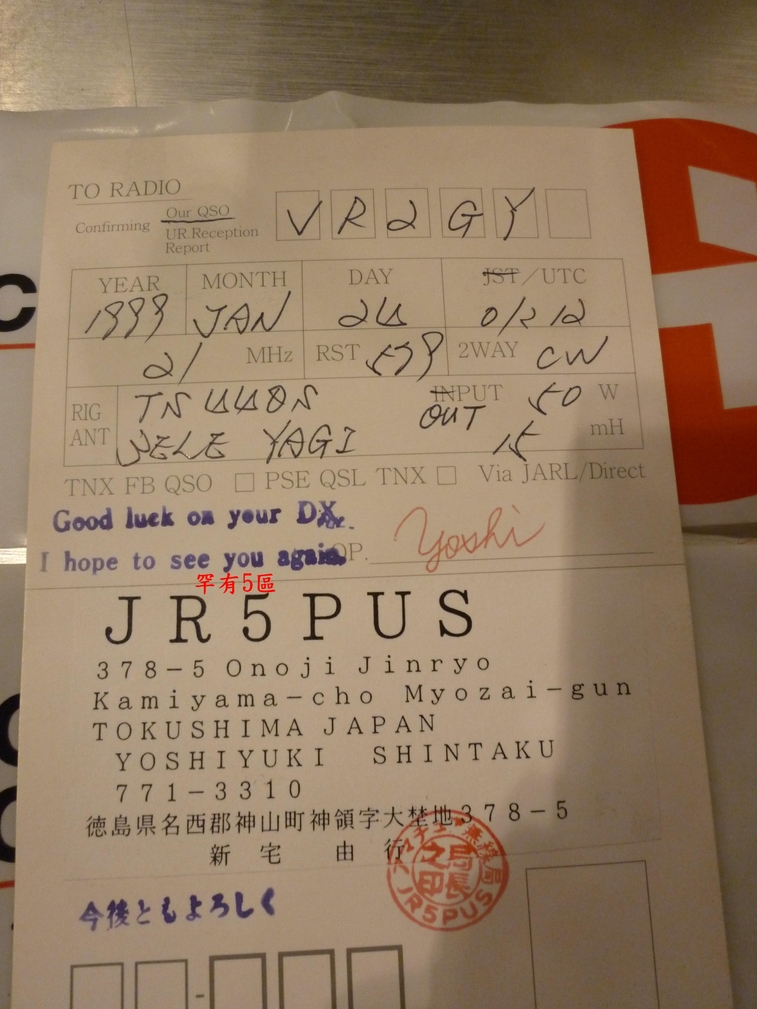 TO RADIO
Confirming Our QSO
UR.Reception
Report
VR2GY
YEAR MONTH DAY JST/UTC
1999 JAN 24 0122
21 MHz RST 599 2WAY CW
RIG TS440S INPUT OUT 50 W
ANT 3ELE YAGI 15 mH
TNX FB QSO □ PSE QSL TNX □ Via JARL/Direct
Good luck on your DX
I hope to see you again. OP. Yoshi
罕有5區
JR5PUS
378-5 Onoji Jinryo
Kamiyama-cho Myozai-gun
TOKUSHIMA JAPAN
YOSHIYUKI SHINTAKU
771-3310
徳島県名西郡神山町神領字大埜地378-5
新宅 由行
アマチュア無線局
之局
印長
JR5PUS
今後ともよろしく